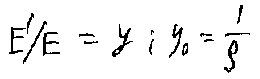 E'/E = y ; y₀ = 1/ρ